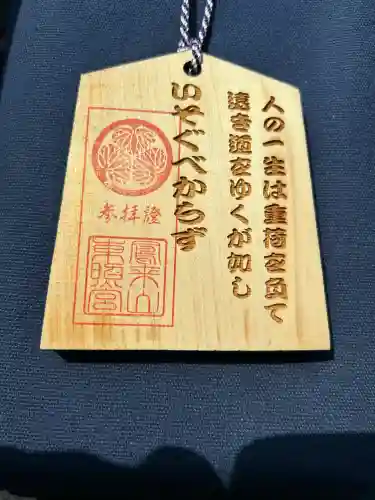 人の一生は重荷を負て
遠き道をゆくが如し
いそぐべからず
参拝證
鳳来山
東照宮